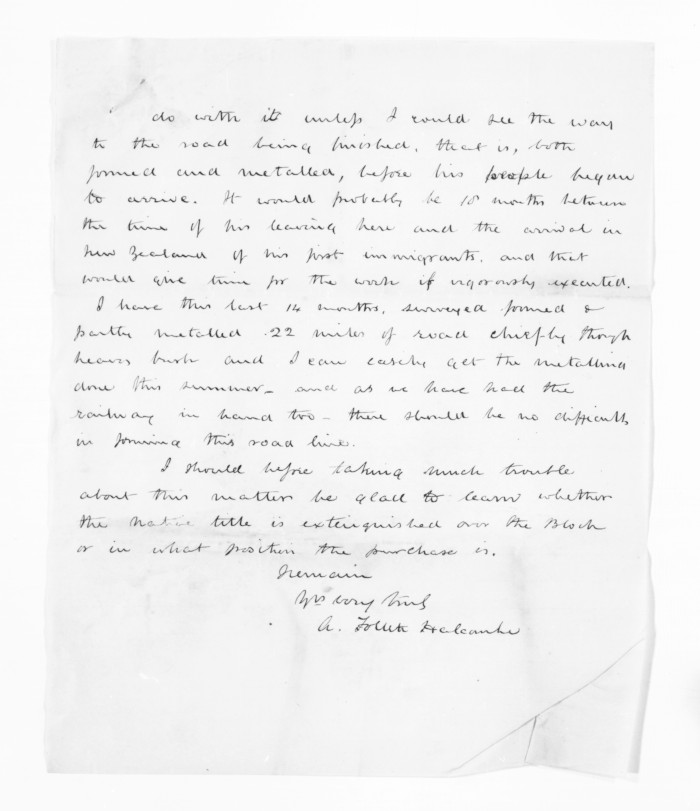 do with it unless I could see the way
to the road being finished, that is, both
formed and metalled, before his people began
to arrive. It would probably be 18 months between
the time of his leaving here and the arrival in
New Zealand of his first immigrants. and that
would give time for the work if vigorously executed.
I have this last 14 months, surveyed formed &
partly metalled 22 miles of road chiefly though
heavy bush and I can easily get the metalling
done this summer - and as we have had the
railway in hand too - there should be no difficulty
in forming this road line.
I should before taking much trouble
about this matter be glad to learn whether
the native title is extinguished over the Block
or in what position the purchase is.
I remain
Yrs very truly
A. Follett Halcombe